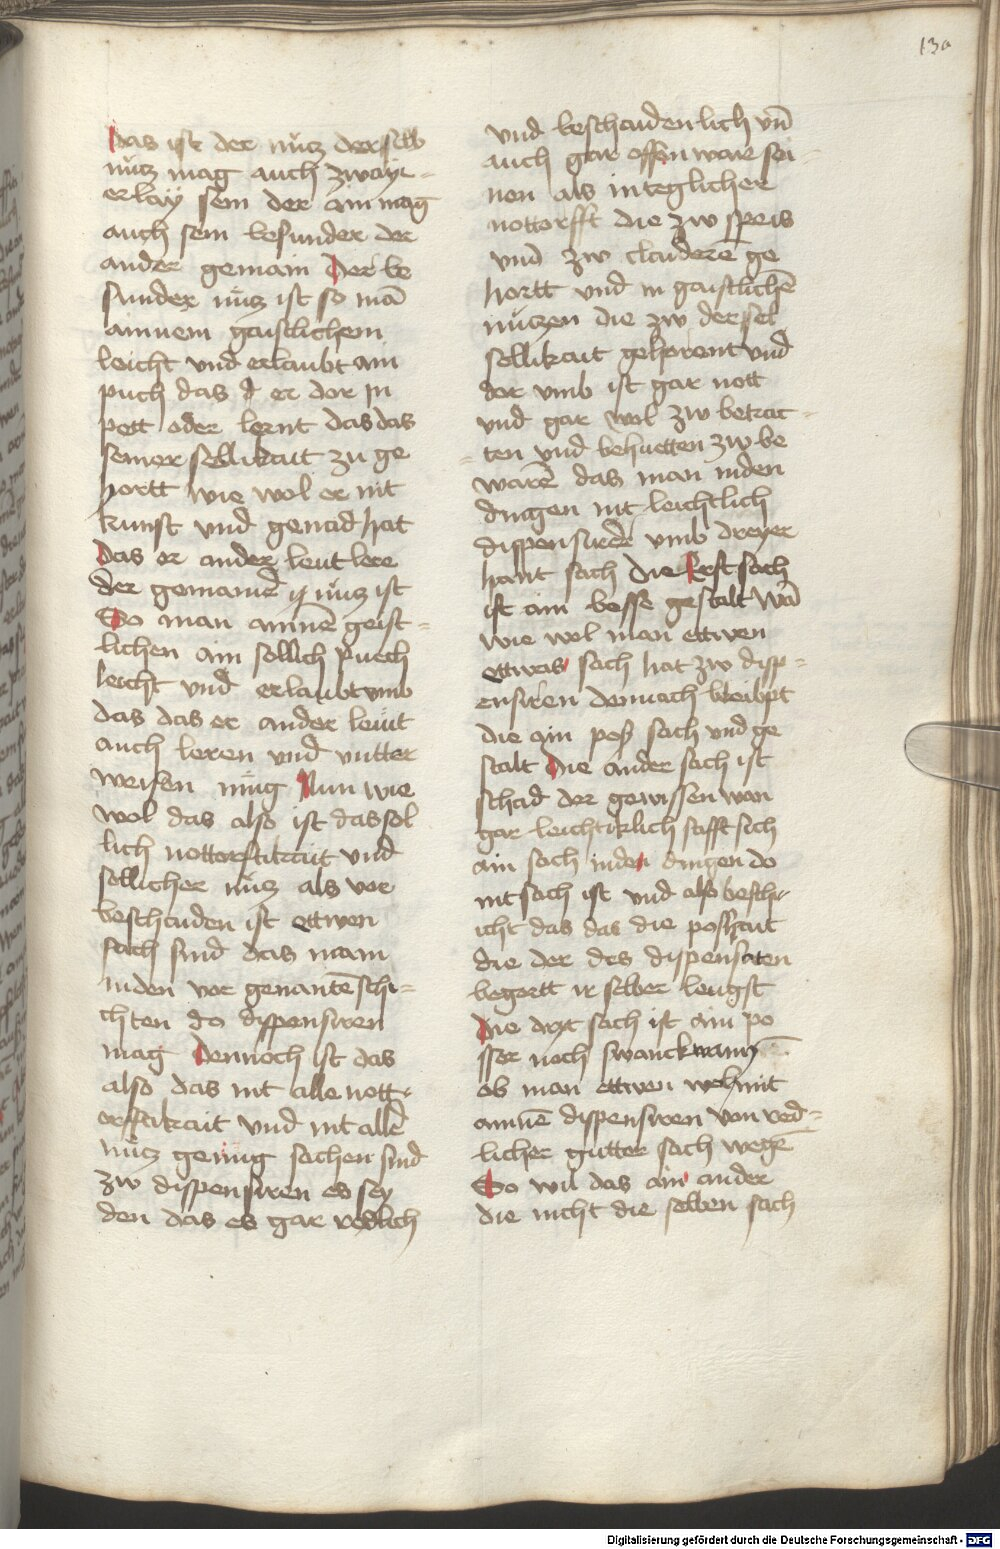 130
Das ist der nücz derselb
nücz mag auch zwayr-
erlay sein der ain mag
auch sein besunder der
ander gemain Der be
sunder nücz ist so mā
ainnem geistlichem
leicht und erlaubt ain
puch das d er dor in
pett oder lernt das das
seiner sellikait zu ge
hortt wie wol er nit
kunst und genad hat
Das er ander leut lere
der gemaine nücz ist
So man ainnē geist-
lichen ain sollich puech
leicht und erlaubt umb
das das er ander leüt
auch leren und unter
weisen müg Nun wie
wol das also ist das sol
lich nottorftikait und
sollicher nücz als vor
beschaiden ist ettwen
sach sind das mam
in den vor genantē schi-
chten do dispensiren
mag Dennoch ist das
also das nit alle nott-
orfftikait und nit allē
nücz genüg sachen sind
zw dispensiren es sey
den das es gar redlich
und beschaidenlich vn̄
auch gar offenwar sei-
nen als in teglicher
nottorfft die zw speis
und zw claiderē ge
hortt und in gaistlichē
nüczen die zw der sel
sellikait gehorent und
dor umb ist gar nott
und gar wol zw betrac-
ten und behuetten zw be
warē das man in den
dingen nit leichtlich
dispensirde umb dreyer
hant sach Die Erst sach
ist ain besse gestalt Wā
wie wol man ettwen
ettwas sach hat zw disp-
ensiren dennoch bleibpt
die ain poß sach und ge
stalt Die ander sach ist
schad der gewissen wan
gar leichtiklich safft sich
ain sach in den dingen do
nit sach ist und also beschi-
icht das das die poshait
die der des dispensiren
begertt ir selber leugst
Die dryt sach ist ain po
sser nach swanck wann
ob man ettwen wol mit
ainnē dispensiren von red-
licher gutter sach wegē
So wil das ain ander
die nicht die selben sach
Digitalisierung gefördert durch die Deutsche Forschungsgemeinschaft - DFG